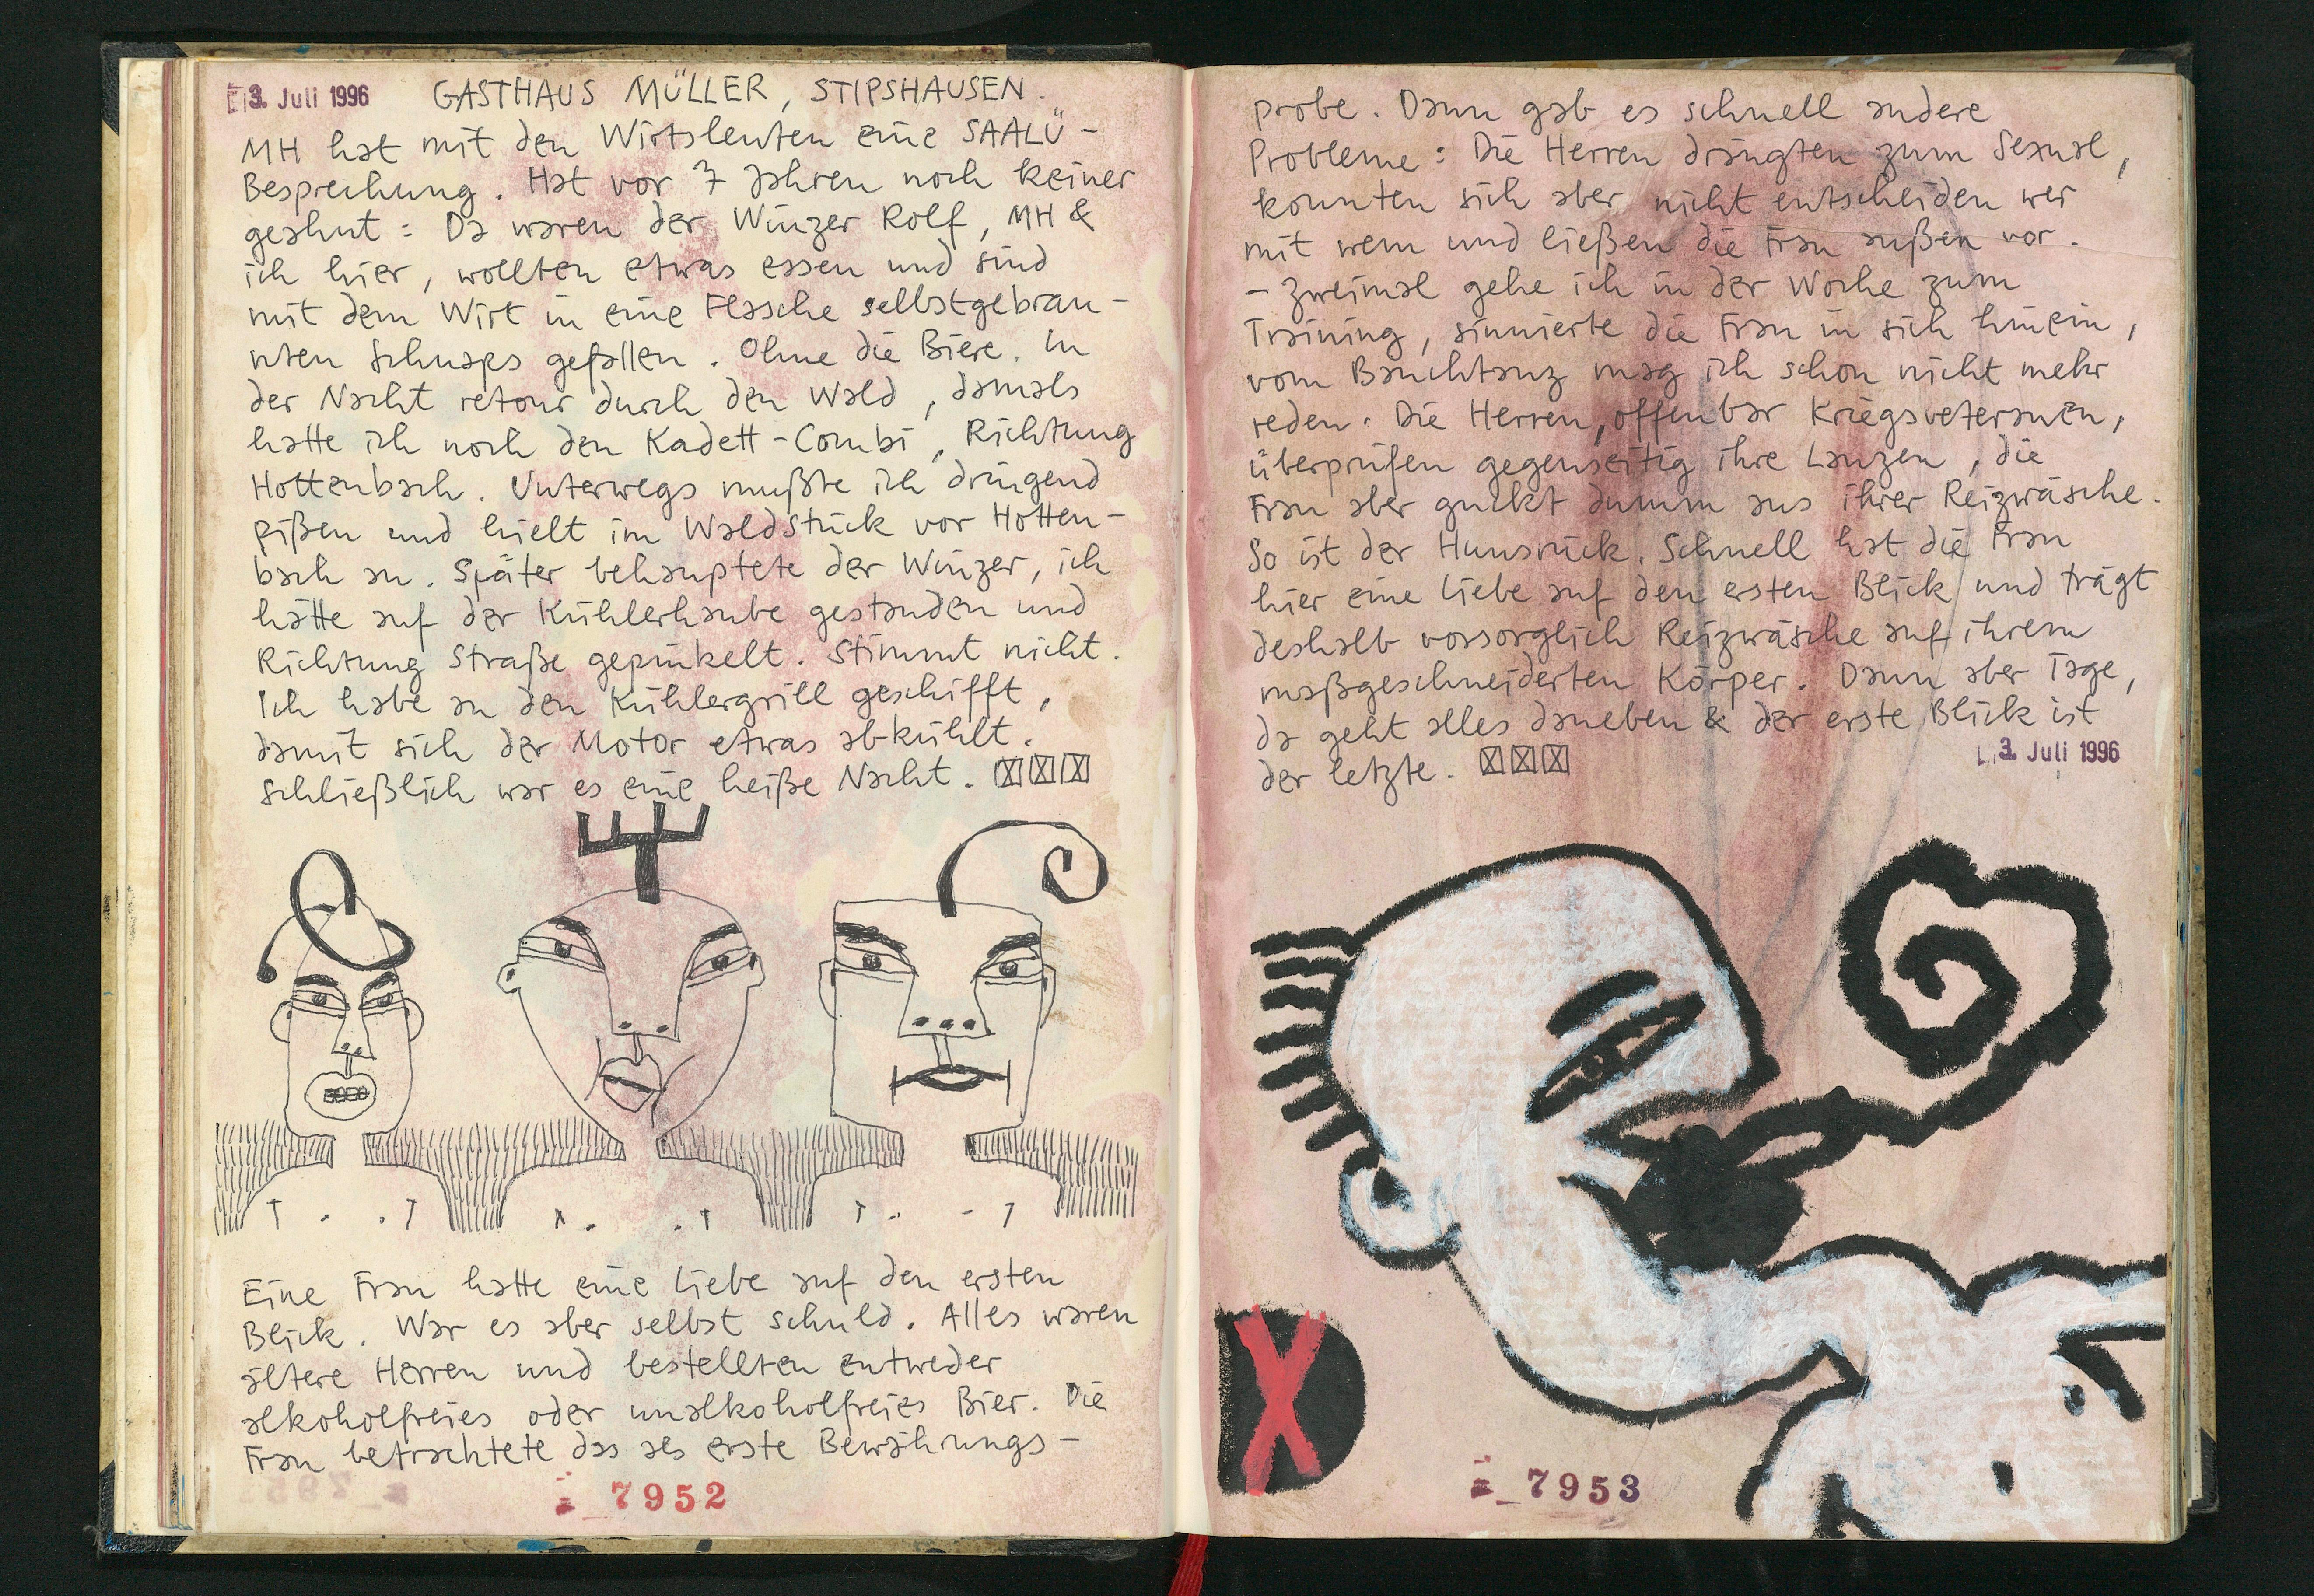 3. Juli 1996
GASTHAUS MÜLLER, STIPSHAUSEN.
MH hat mit den Wirtsleuten eine SAALÜ-
Besprechung. Hat vor 7 Jahren noch keiner
geahnt: Da waren der Winzer Rolf, MH &
ich hier, wollten etwas essen und sind
mit dem Wirt in eine Flasche selbstgebran-
nten Schnaps gefallen. Ohne die Biere. In
der Nacht retour durch den Wald, damals
hatte ich noch den Kadett-Combi, Richtung
Hottenbach. Unterwegs mußte ich dringend
pißen und hielt im Waldstück vor Hotten-
bach an. Später behauptete der Winzer, ich
hätte auf der Kühlerhaube gestanden und
Richtung Straße gepinkelt. Stimmt nicht.
Ich habe an den Kühlergrill geschifft,
damit sich der Motor etwas abkühlt.
Schließlich war es eine heiße Nacht.
Eine Frau hatte eine Liebe auf den ersten
Blick. War es aber selbst schuld. Alles waren
ältere Herren und bestellten entweder
alkoholfreies oder unalkoholfreies Bier. Die
Frau betrachtete das als erste Bewährungs-
7952
probe. Dann gab es schnell andere
Probleme: Die Herren drängten zum Sexual,
konnten sich aber nicht entscheiden wer
mit wem und ließen die Frau außen vor.
- zweimal gehe ich in der Woche zum
Training, sinnierte die Frau in sich hinein,
vom Bauchtanz mag ich schon nicht mehr
reden. Die Herren, offenbar Kriegsveteranen,
überprüfen gegenseitig ihre Lanzen, die
Frau aber guckt dumm aus ihrer Reizwäsche.
So ist der Hunsrück. Schnell hat die Frau
hier eine Liebe auf den ersten Blick und trägt
deshalb vorsorglich Reizwäsche auf ihrem
maßgeschneiderten Körper. Dann aber Tage,
da geht alles daneben & der erste Blick ist
der letzte.
3. Juli 1996
X
7953